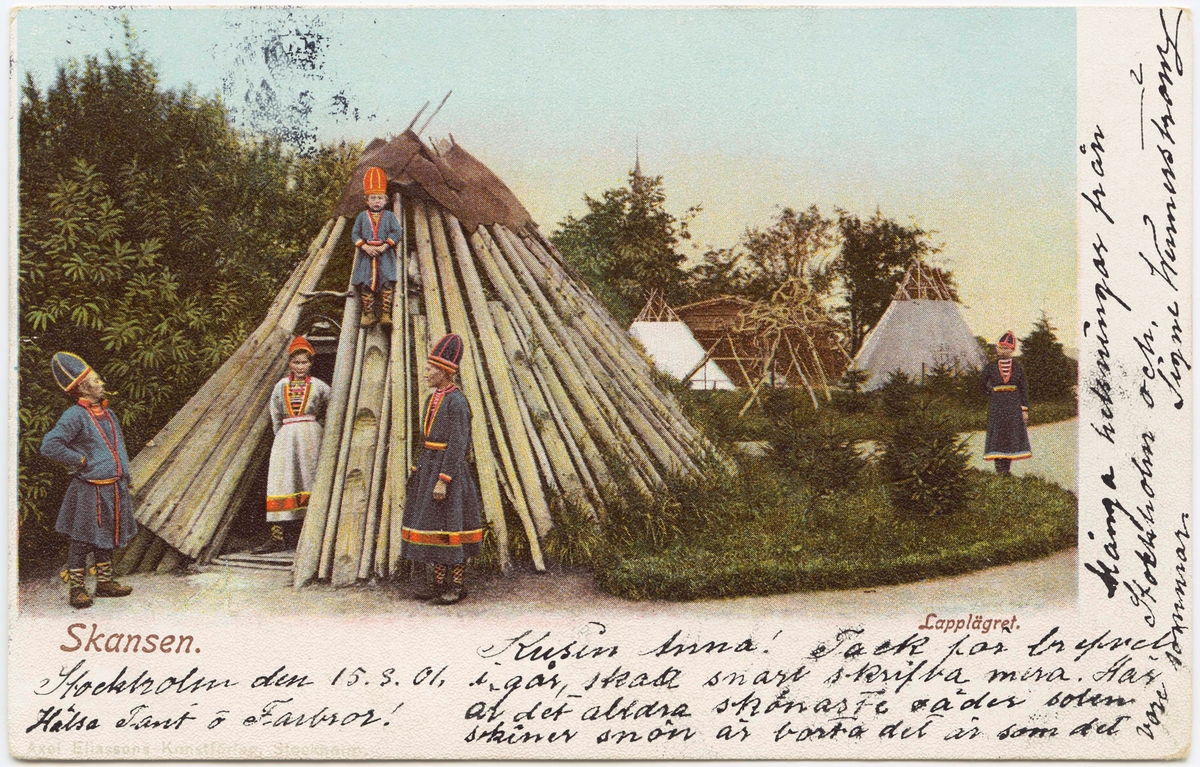 Skansen.
Lapplägret.
Stockholm den 15.3.01.
Hälsa Tant o Farbror!
Kusin Anna! Tack för brefvet
i går, skall snart skrifva mera. Här
är det alldra skönaste väder solen
skiner snön är borta det är som det
vore sommar.
Många helsningar från
Stockholm och
Signe
Axel Eliassons Konstförlag, Stockholm.